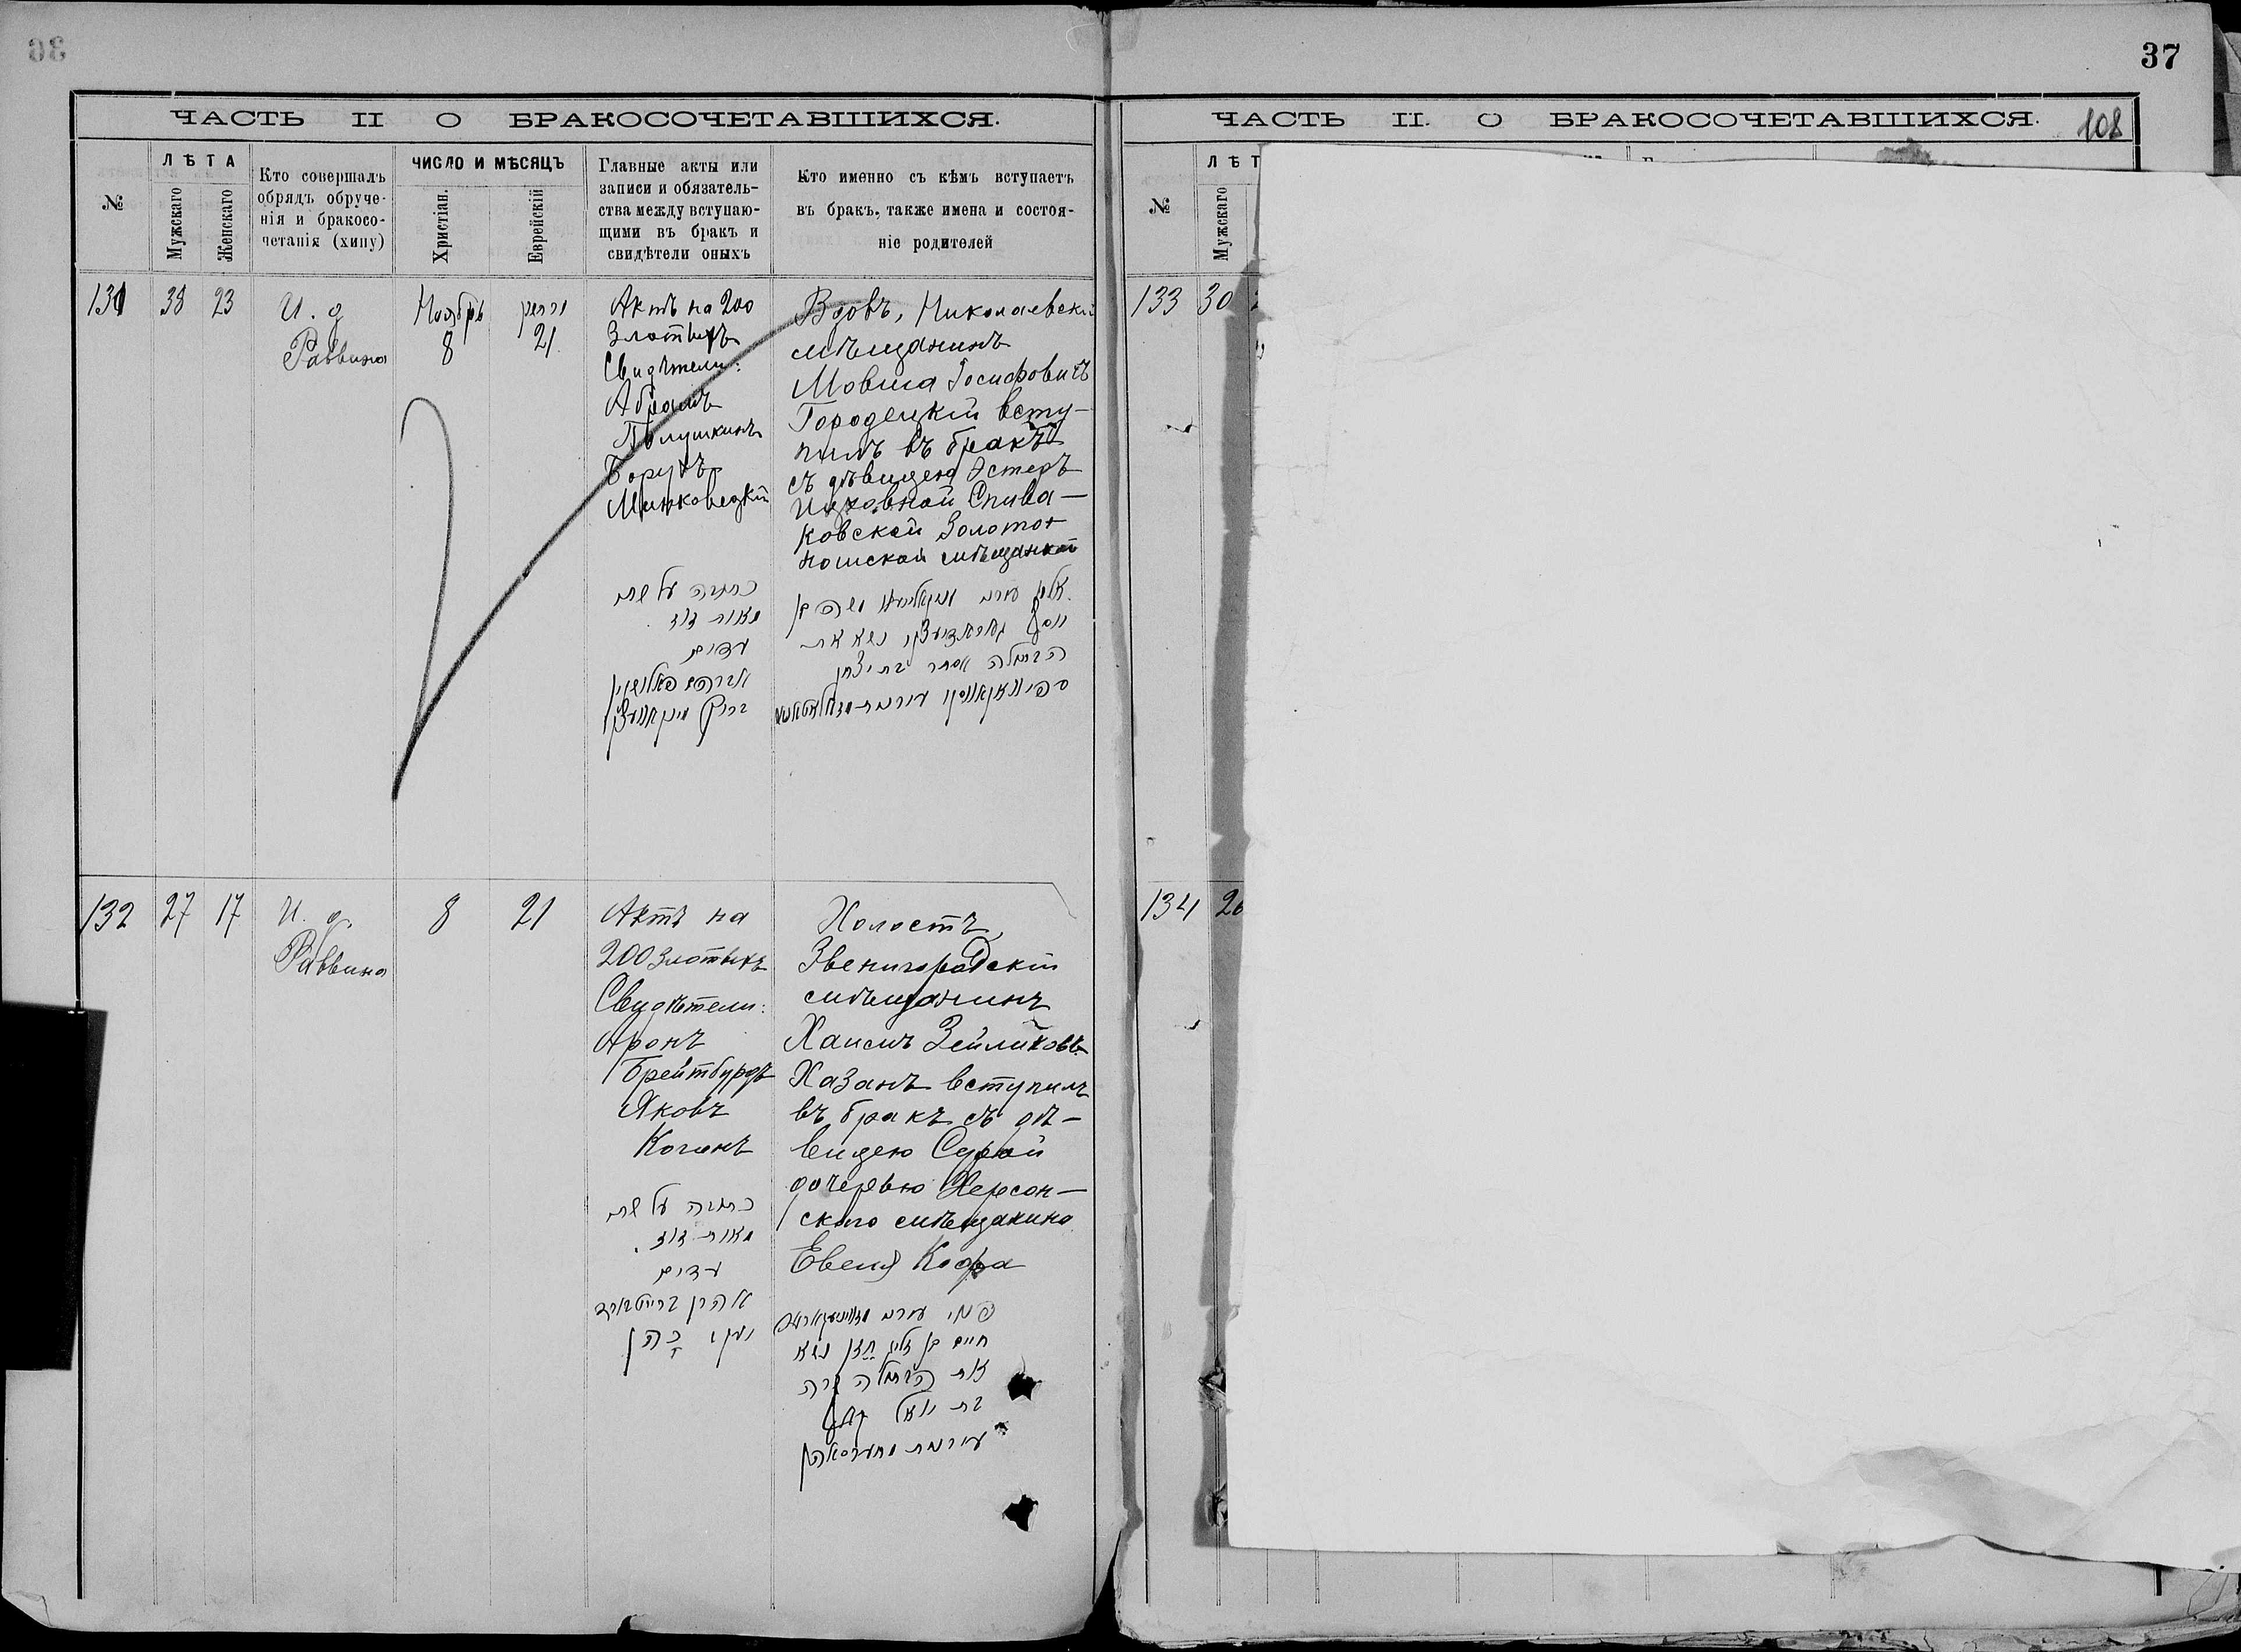 37
ЧАСТЬ II О БРАКОСОЧЕТАВШИХСЯ.
№
ЛѢТА
Мужскаго
Женскаго
Кто совершалъ
обрядъ обруче-
нія и бракосо-
четанія (хипу)
ЧИСЛО И МѢСЯЦЪ
Христіан.
Еврейскій
Главные акты или
записи и обязатель-
ства между вступаю-
щими въ бракъ и
свидѣтели оныхъ
Кто именно съ кѣмъ вступаетъ
въ бракъ, также имена и состоя-
ніе родителей
131
38
23
И. д
Раввина
Ноябрь
8
21
Актъ на 200
Злотыхъ
Свидѣтели:
Абрамъ
Борухъ
Миньковецкій
Вдовъ, Николаевскій
мѣщанинъ
Мовша Іосифовичъ
Городецкій всту-
пилъ въ бракъ
съ дѣвицею Эстеръ
Ицховной Спива-
ковской Золото-
ношской мѣщанкой
כתובה על שתי
מאות זוז
עדים
132
27
17
И. д.
Раввина
8
21
Актъ на
200 Злотыхъ
Свидѣтели:
Аронъ
Брейтбурдъ
Яковъ
Коганъ
Холостъ,
Звенигородскій
мѣщанинъ
Хаимъ Зейликовъ
Хазанъ вступилъ
въ бракъ съ дѣ-
вицею Сурой
дочерью Херсон-
скаго мѣщанина
כתובה על שתי
מאות זוז.
עדים
אהרן ברייטבורד
יעקב כהן
חיים בן זליג חזן נשא
את הבתולה שרה
ЧАСТЬ II. О БРАКОСОЧЕТАВШИХСЯ.
108
№
Мужскаго
133
30
134